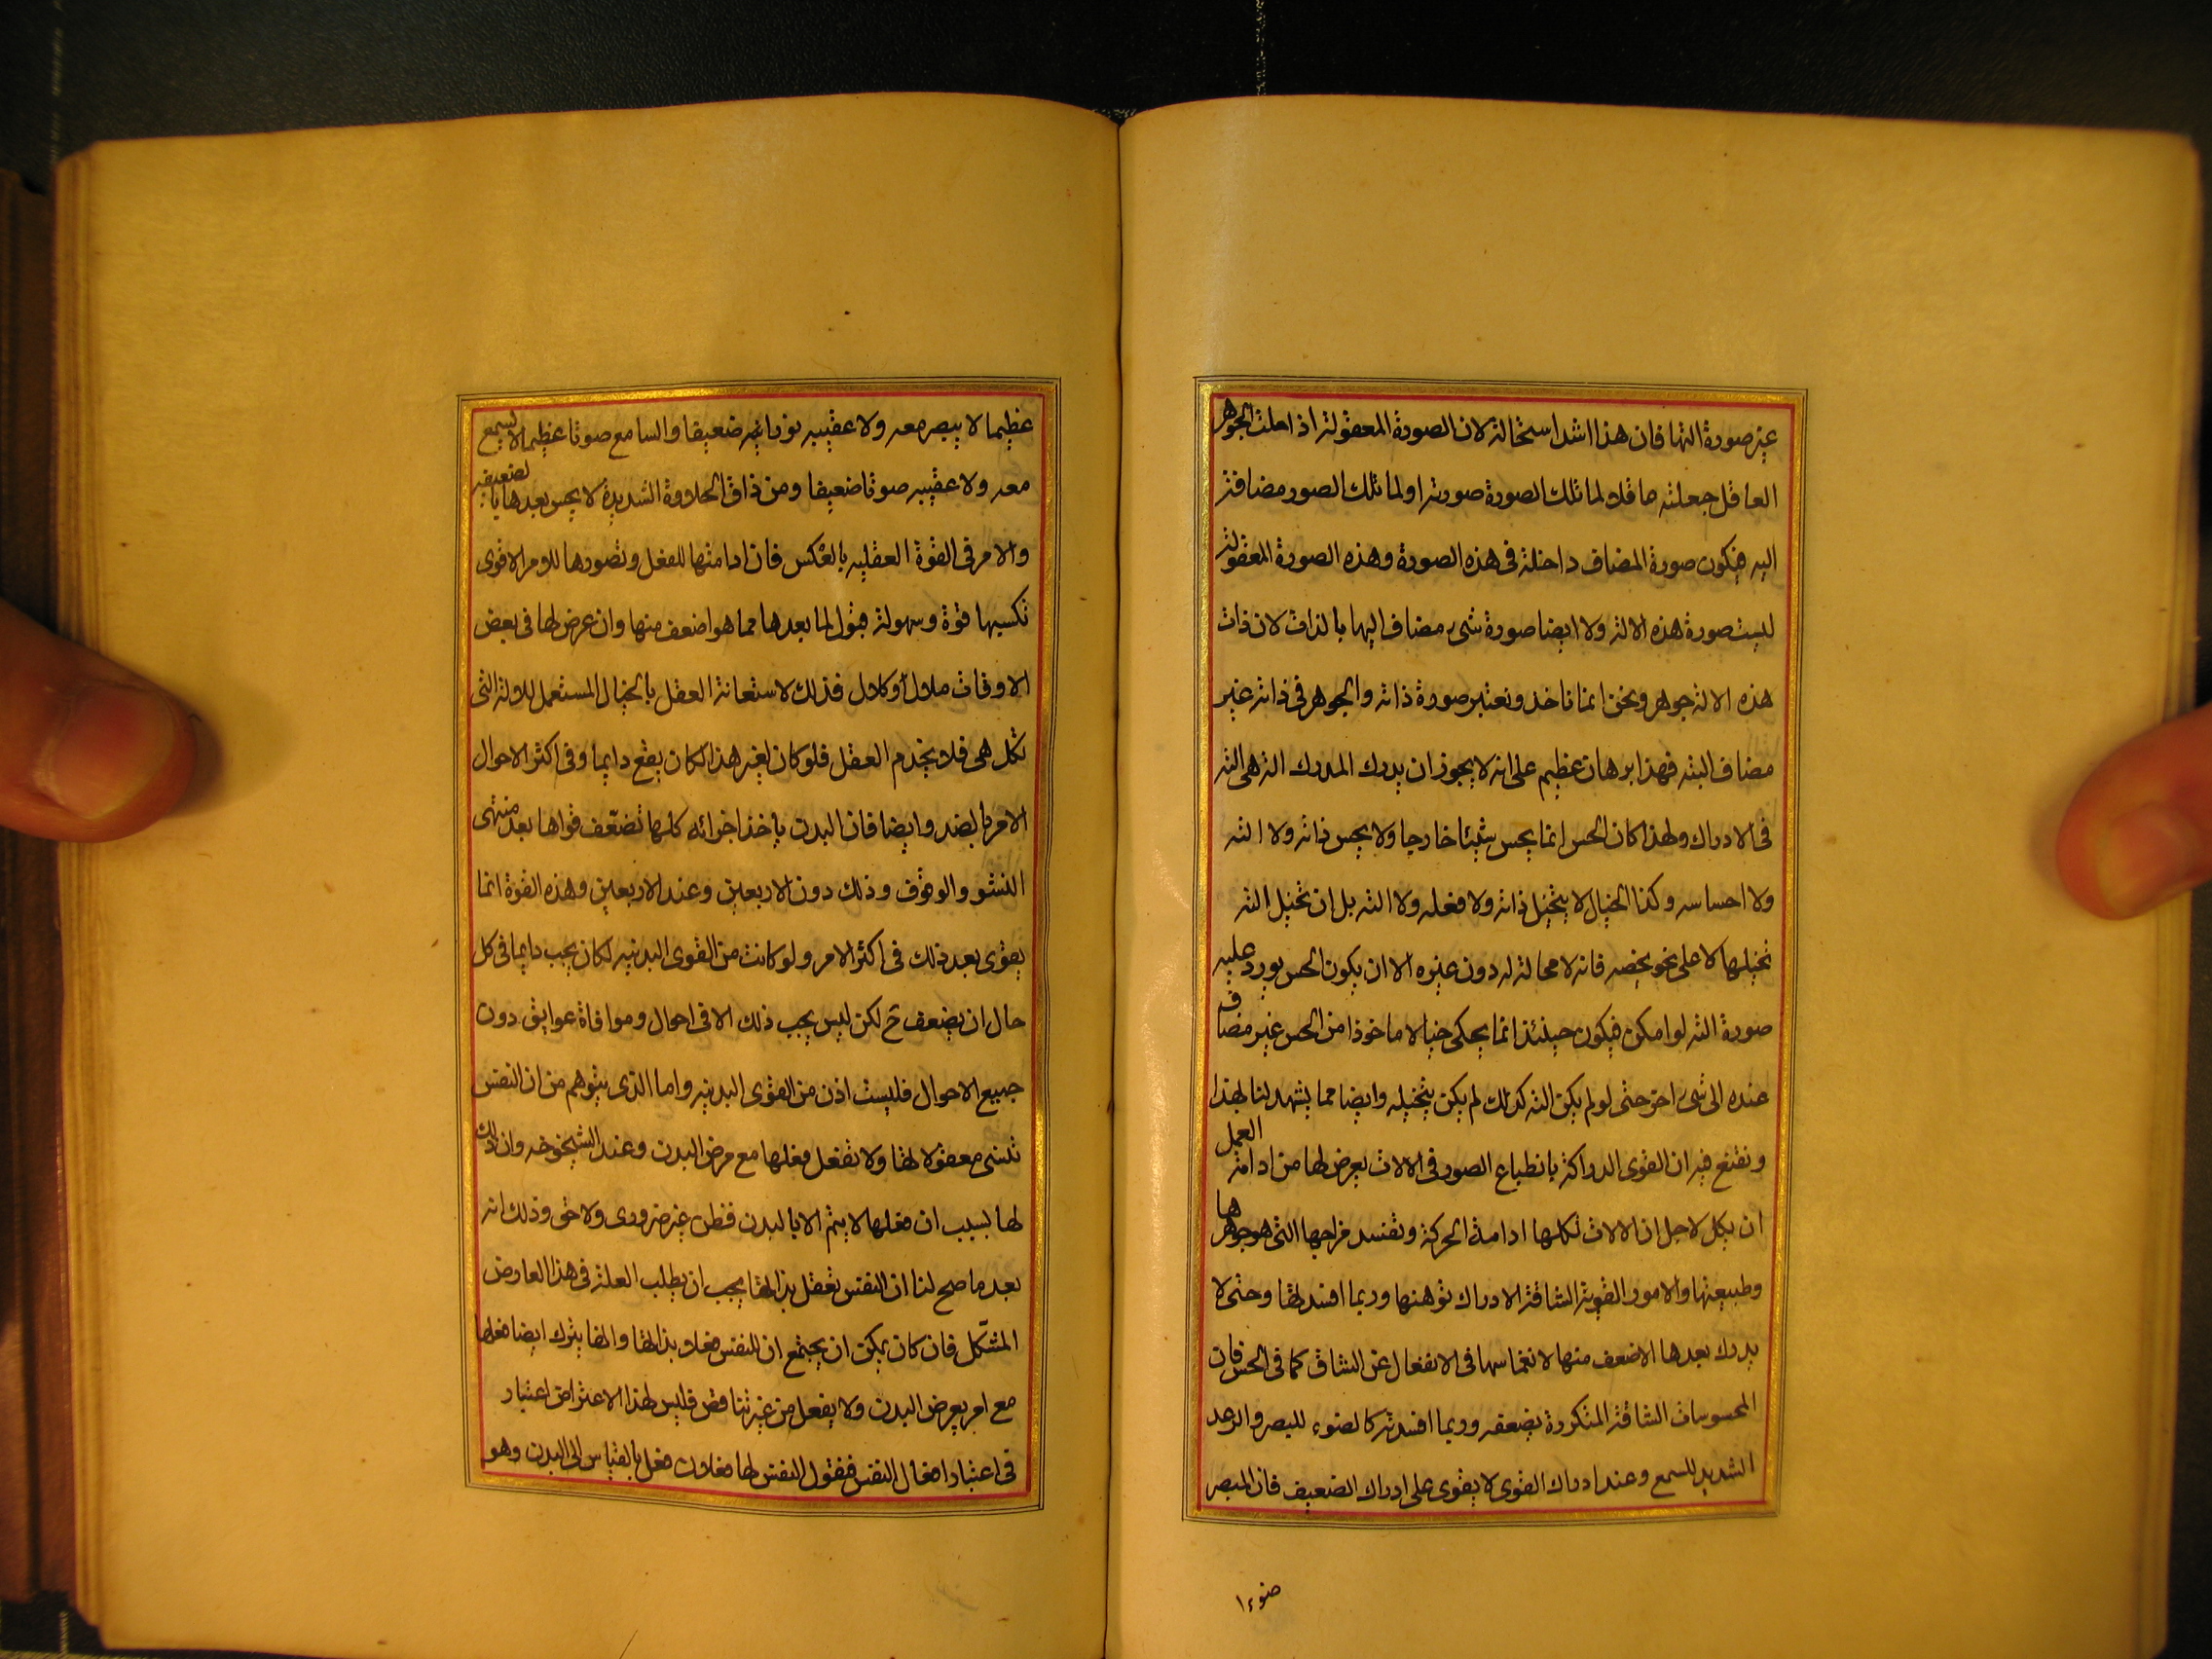 غير صورة التها فان هذا اشد استحالة لان الصورة المعقولة اذا حلت الجوهر
العاقل جعلته عاقلا لما تلك الصورة صورته او لما تلك الصور مضافة
اليه فيكون صورة المضاف داخلة فى هذه الصورة وهذه الصورة المعقولة
ليست صورة هذه الالة ولا ايضا صورة شىء مضاف اليها بالذات لان ذات
هذه الالة جوهر ونحن انما ناخذ ونعتبر صورة ذاته والجوهر فى ذاته غير
مضاف البته فهذا برهان عظيم على انه لا يجوز ان يدرك المدرك الة هى آلته
فى الادراك ولهذا كان الحس انما يحس شيئا خارجا ولا يحس ذاته ولا التة
ولا احساسه وكذا الخيال لا يتخيل ذاته ولا فعله ولا التة بل ان تخيل التة
تخيلها لا على نحو يخصه فانه لا محالة له دون غيره الا ان يكون الحس يورد عليه
صورة التة لو امكن فيكون حينئذ انما يحكى خيالا ماخوذا من الحس غير مضاف
عنده الى شىء اخر حتى لو لم يكن التة كذلك لم يكن يتخيله وايضا مما يشهد لنا بهذا
ونقنع فيه ان القوى الدراكة بانطباع الصور فى الالات يعرض لها من ادامة العمل
ان يكل لاجل ان الالات تكلها ادامة الحركة وتفسد مزاجها التى هو جوهرها
وطبيعتها والامور القوية الشاقة الادراك توهنها وربما افسدتها وحتى لا
يدرك بعدها الاضعف منها لانغماسها فى الانفعال عن الشاق كما فى الحس فان
المحسوسات الشاقة المتكررة يضعفه وربما افسدته كالضوء للبصر والرعد
الشديد للسمع وعند ادراك القوى لا يقوى على ادراك الضعيف فان المبصر
ضوءا
عظيما لا يبصر معه ولا عقيبه نورا ضعيفا والسامع صوتا عظيما لا يسمع
معه ولا عقيبه صوتا ضعيفا ومن ذاق الحلاوة الشديدة لا يحس بعدها بالضعيفه
والامر فى القوة العقليه بالعكس فان ادامتها للفعل وتصورها للامر الاقوى
تكسبها قوة وسهولة قبول لما بعدها مما هو اضعف منها وان عرض لها فى بعض
الاوقات ملال او كلال فذلك لاستعانة العقل بالخيال المستعمل للالة التى
تكل هى فلا يخدم العقل فلو كان لغير هذا لكان يقع دايما وفى اكثر الاحوال
الامر بالضد وايضا فان البدن ياخذ اجزائه كلها تضعف قواها بعد منتهى
النشو والوقوف وذلك دون الاربعين وعند الاربعين وهذه القوة انما
يقوى بعد ذلك فى اكثر الامر ولو كانت من القوى البدنيه لكان يجب دايما فى كل
حال ان يضعف ح لكن ليس يجب ذلك الا فى احوال وموافاة عوايق دون
جميع الاحوال فليست اذن من القوى البدنيه واما الذى يتوهم من ان النفس
تنسى معقولاتها ولا تفعل فعلها مع مرض البدن وعند الشيخوخه وان ذلك
لها بسبب ان فعلها لا يتم الا بالبدن فظن غير ضرورى ولا حق وذلك انه
بعد ما صح لنا ان النفس تعقل بذاتها يجب ان يطلب العلة فى هذا العارض
المشكل فان كان يمكن ان يجتمع ان للنفس فعلا بذاتها وانها يترك ايضا فعلها
مع امر يعرض البدن ولا يفعل من غير تناقض فليس لهذا الاعتراض اعتبار
فى اعتبار افعال النفس فنقول النفس لها فعلان فعل بالقياس الى البدن وهو